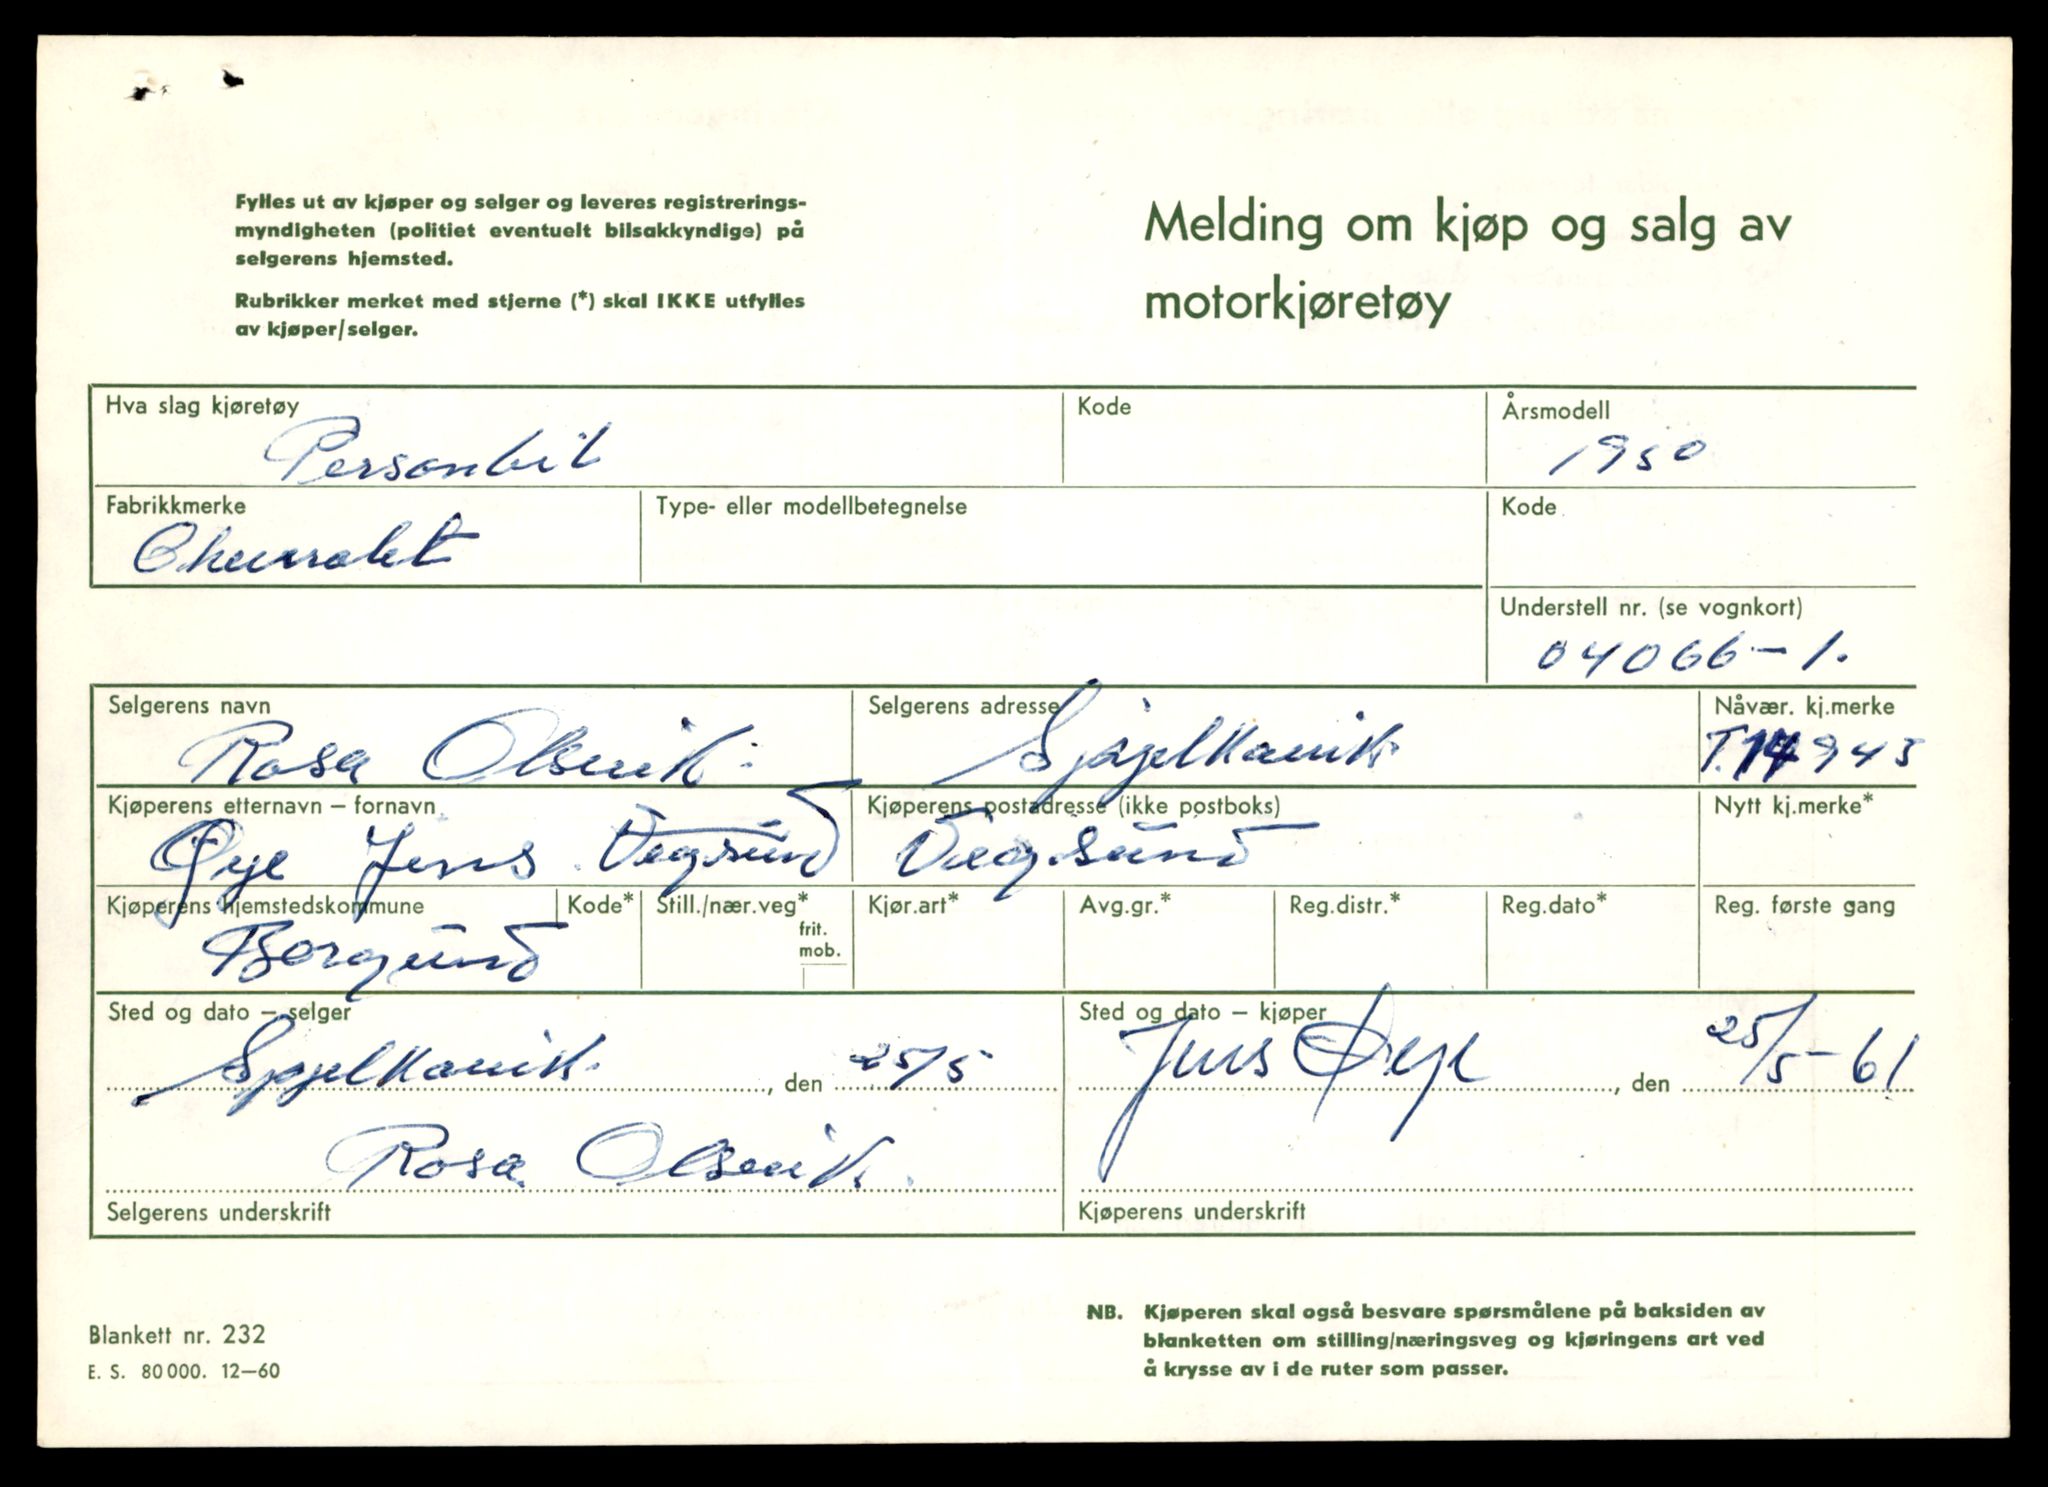 Fylles ut av kjøper og selger og leveres registrerings-
myndigheten (politiet eventuelt bilsakkyndige) på
selgerens hjemsted.
Rubrikker merket med stjerne (*) skal IKKE utfylles
av kjøper/selger.
Melding om kjøp og salg av
motorkjøretøy
Hva slag kjøretøy
Personbil
Kode
Årsmodell
1950
Fabrikkmerke
Chevrolet
Type- eller modellbetegnelse
Kode
Understell nr. (se vognkort)
04066-1.
Selgerens navn
Rosa Olsvik.
Selgerens adresse
Spjelkavik
Nåvær. kj.merke
T.14943
Kjøperens etternavn – fornavn
Øye Jens Vegsund
Kjøperens postadresse (ikke postboks)
Vegsund
Nytt kj.merke*
Kjøperens hjemstedskommune
Borgund
Kode*
Still./nær.veg*
frit.
mob.
Kjør.art*
Avg.gr.*
Reg.distr.*
Reg.dato*
Reg. første gang
Sted og dato – selger
Spjelkavik , den 25/5
Rosa Olsvik.
Selgerens underskrift
Sted og dato – kjøper
Jens Øye , den 25/5-61
Kjøperens underskrift
Blankett nr. 232
E. S. 80 000. 12–60
NB. Kjøperen skal også besvare spørsmålene på baksiden av
blanketten om stilling/næringsveg og kjøringens art ved
å krysse av i de ruter som passer.